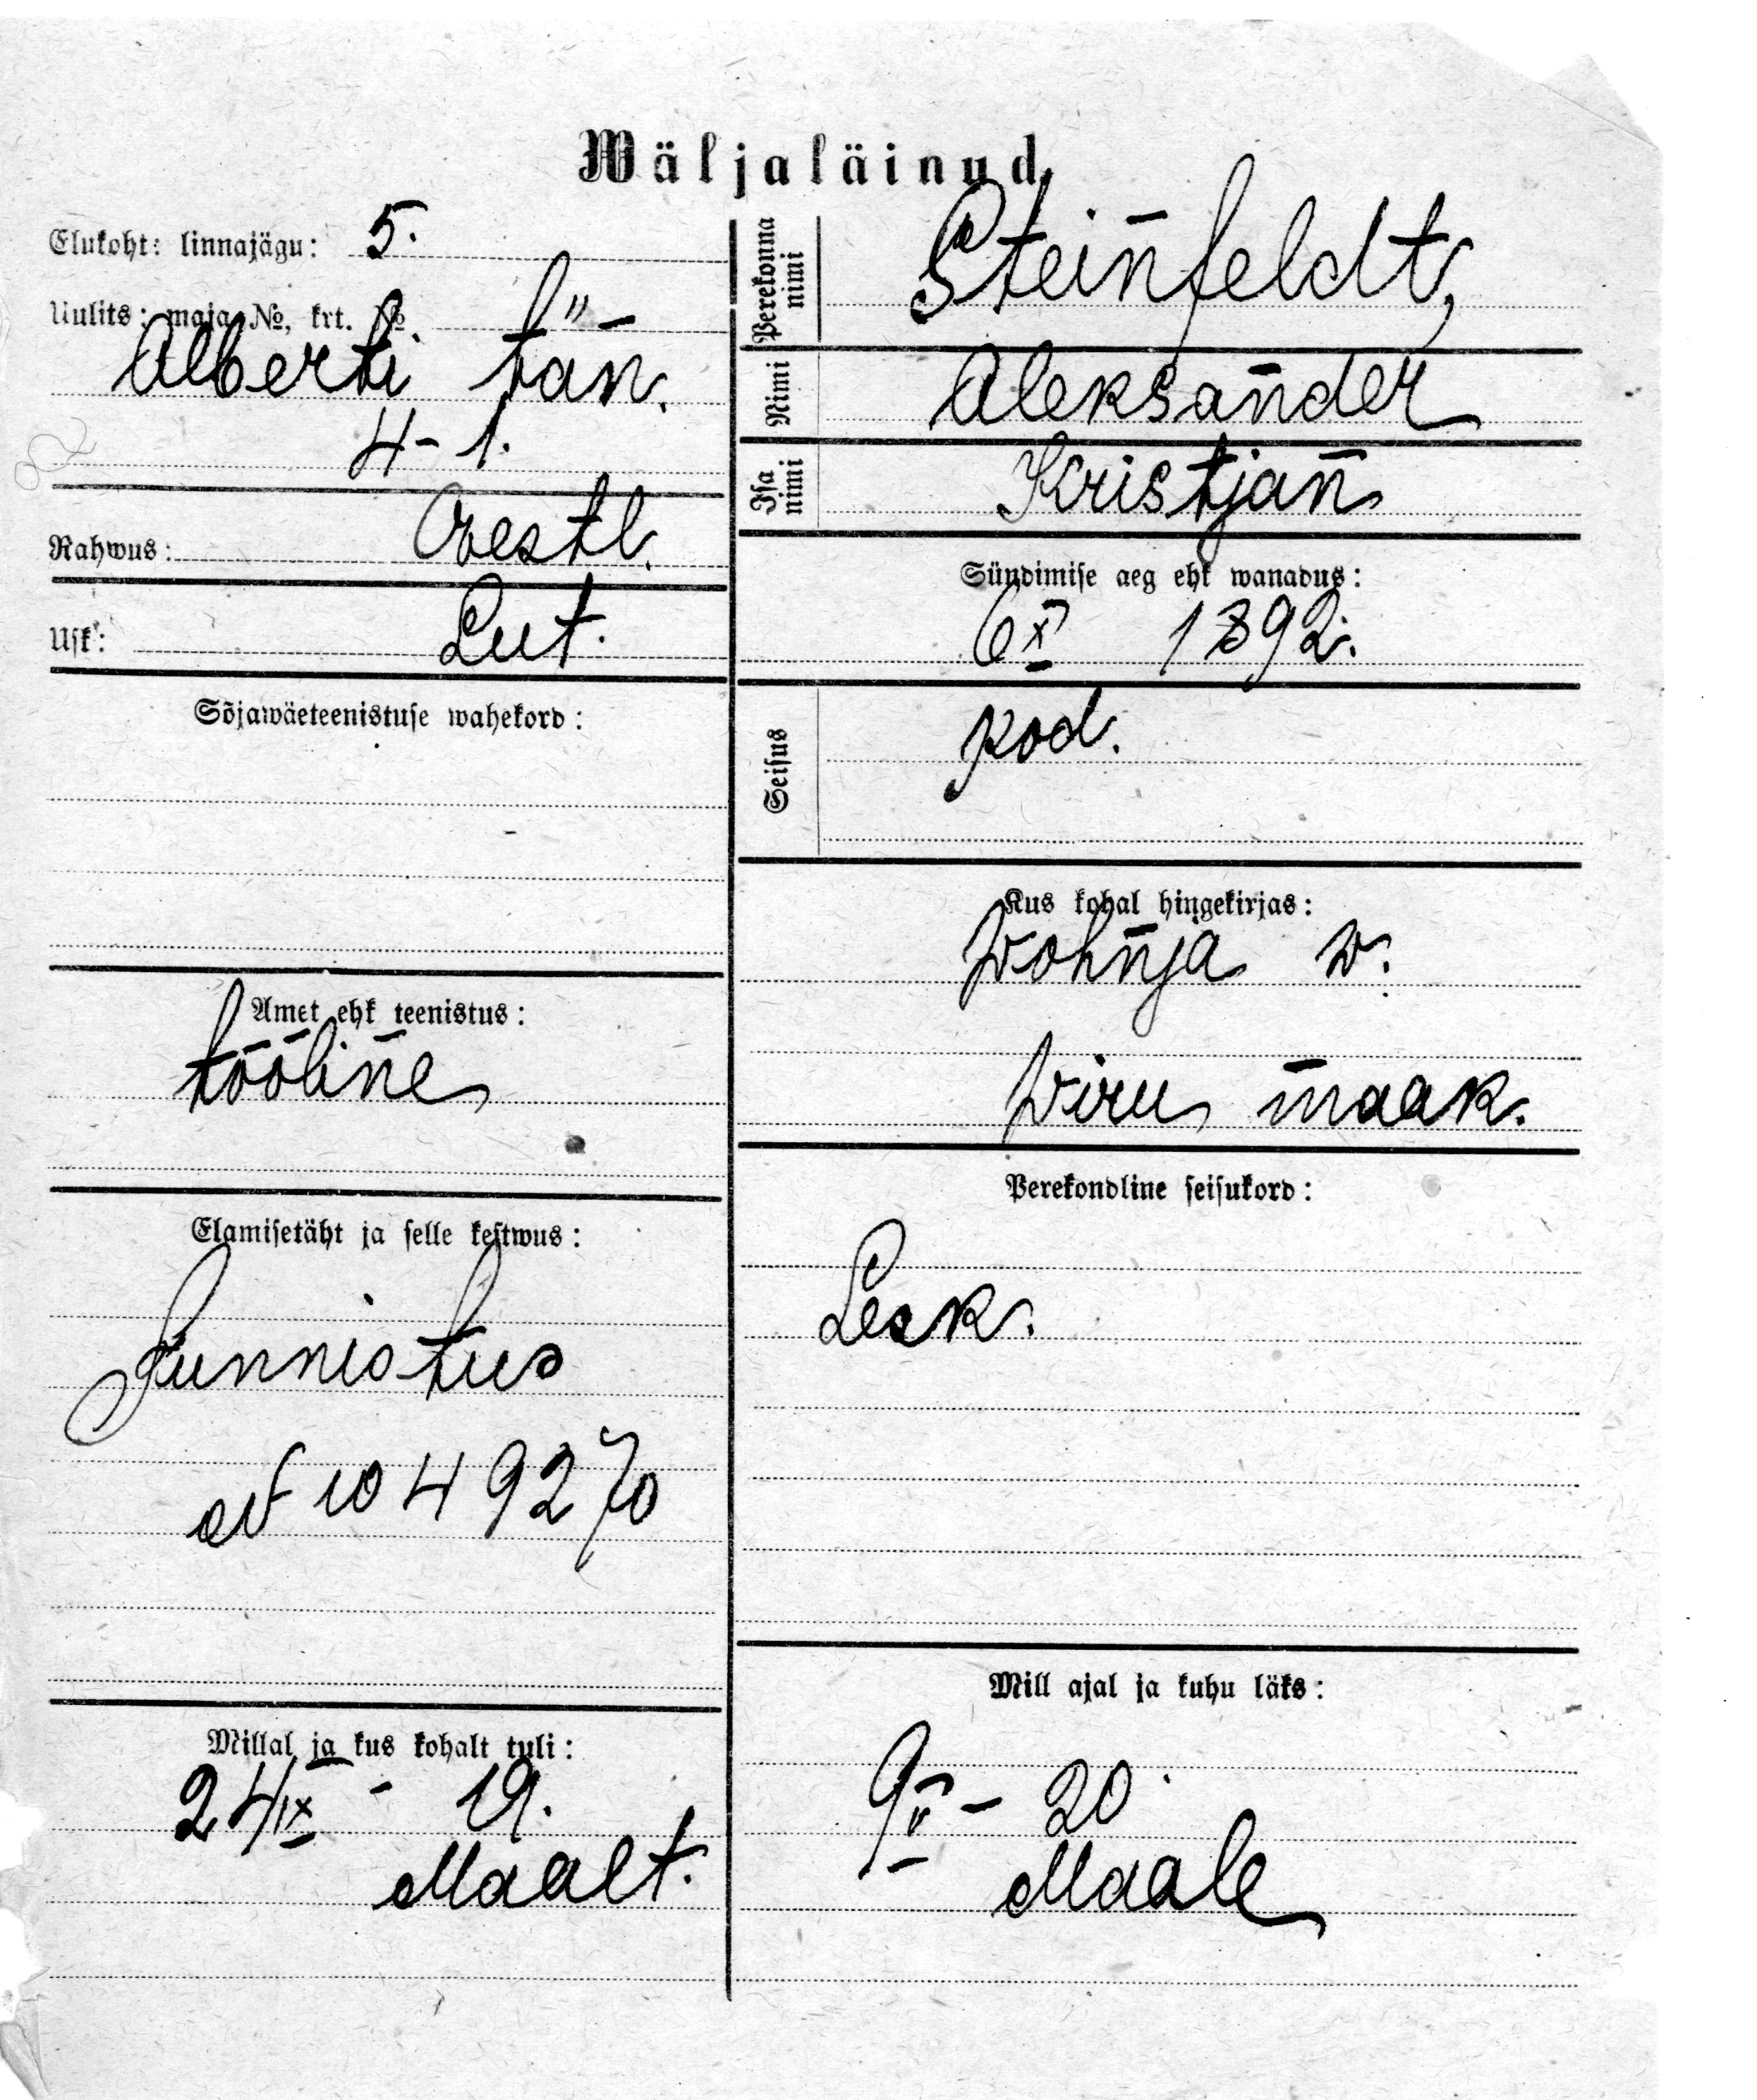 Wäljaläinud
Elukoht: linnajägu: 5.
Uulits: maja №, krt. №
Alberti tän.
4-1.
Rahwus: Eestl.
Usk: Lut.
Sõjawäeteenistuse wahekord:
Amet ehk teenistus:
tööline
Elamisetäht ja selle kestwus:
Tunnistus
№ 1049270
Millal ja kus kohalt tuli:
24 IX - 19.
Maalt.
Perekonna nimi
Steinfeldt,
Nimi
Aleksander
Isa nimi
Kristjan
Sündimise aeg ehk wanadus:
6 X 1892.
Seisus
kod.
Kus kohal hingekirjas:
Wohnja w.
Wiru maak.
Perekondline seisukord:
Lesk.
Mill ajal ja kuhu läks:
9 V - 20
Maale